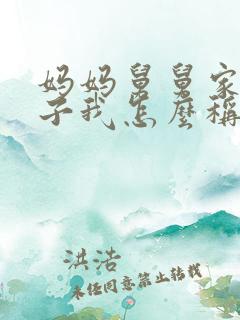 妈妈舅舅家
子我怎麼稱
洪浩
未经同意禁止转载